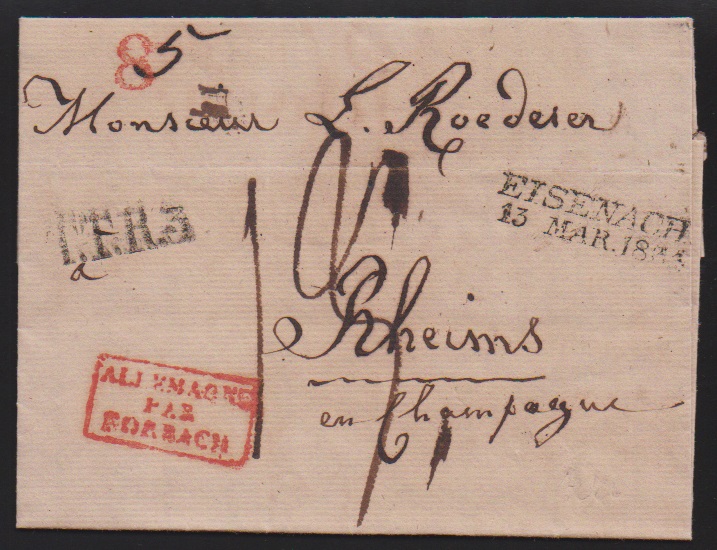 8 5
Monsieur L. Roederer
EISENACH
13 MAR. 18
T.T.R.3
à
Rheims
en Champagne
ALLEMAGNE
PAR
FORBACH
19